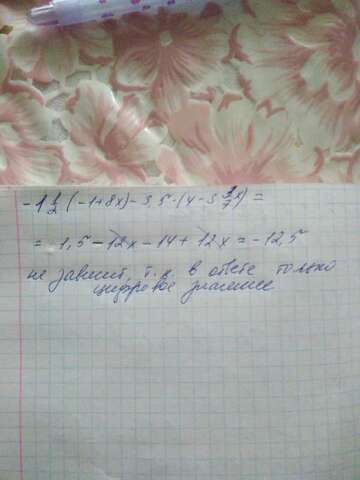 -1 1/2 (-1+8x)-3,5·(4-3 3/7x)=
= 1,5-12x-14+12x=-12,5
не зависит, т.к в ответе только
цифровое значение